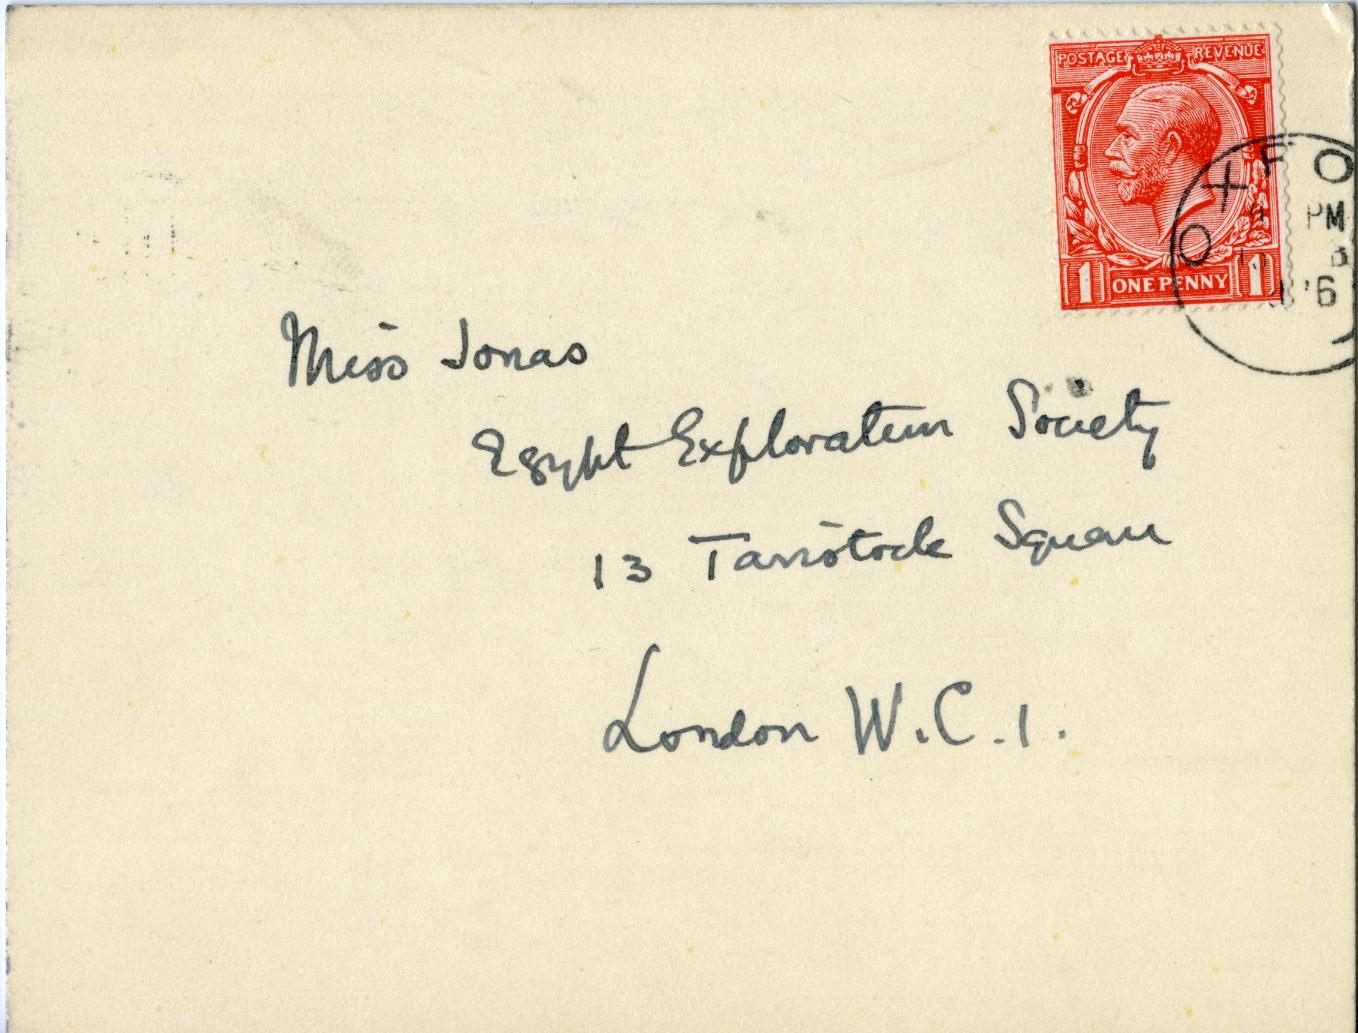 POSTAGE REVENUE
1 ONE PENNY 1
OXFO
PM
Miss Jonas
Egypt Exploration Society
13 Tavistock Square
London W.C.1.